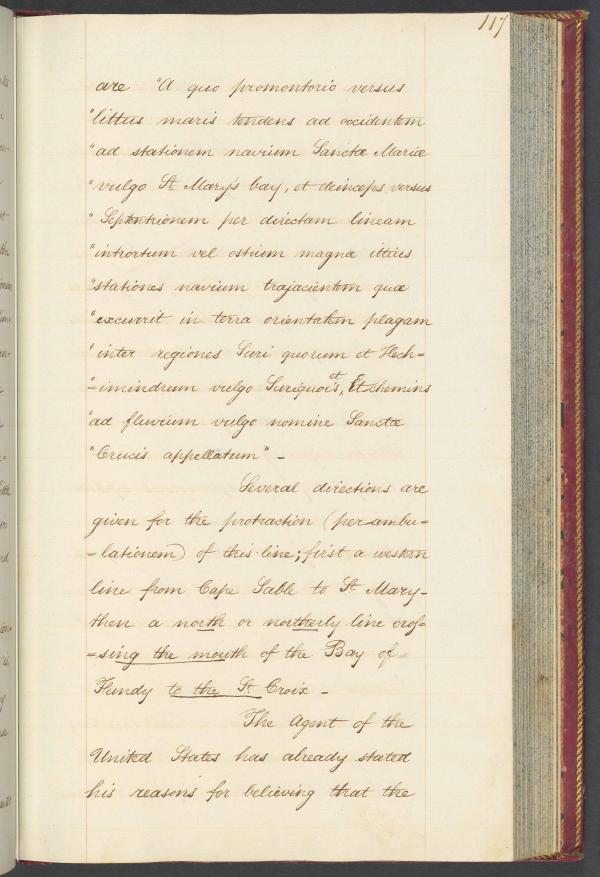 117
are "A quo promontorio versus
"littus maris tendens ad occidentem
"ad stationem navium Sanctæ Mariæ
"vulgo St. Mary's bay, et deinceps versus
"Septentrionem per directam lineam
"introitum vel ostium magnæ illius
"stationes navium trajacientem quæ
"excurrit in terra orientalem plagam
"inter regiones Suri quorum et Hech=
"=imindrum vulgo Suriquois et, Etchemins
"ad fluvium vulgo nomine Sanctæ
"Crucis appellatum" -
Several directions are
given for the protraction (per ambu=
=lationem) of this line; first a western
line from Cape Sable to St Mary-
then a north or northerly line cros=
=sing the mouth of the Bay of
Fundy to the St. Croix -
The Agent of the
United States has already stated
his reasons for believing that the